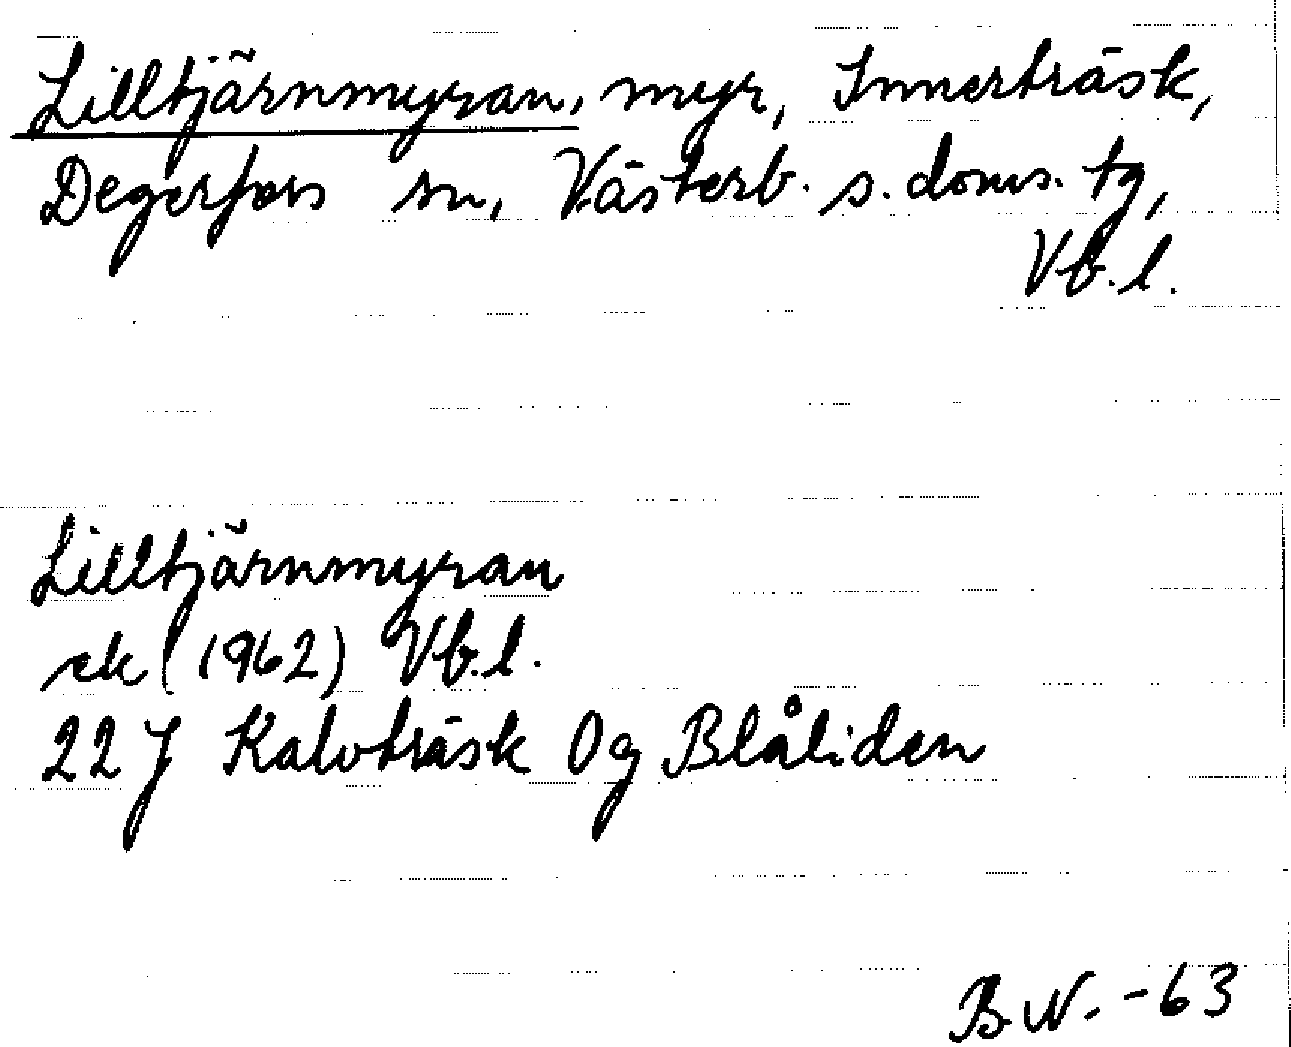 Lilltjärnmyran, myr, Innerträsk,
Degerfors sn, Västerb. s. doms. tg,
Vb. l.
Lilltjärnmyran
ek (1962) Vb. l.
22 J Kalvträsk 0g Blåliden
B.W. -63